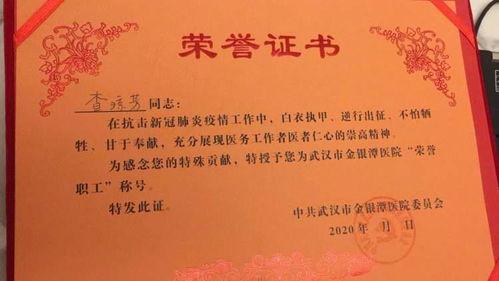 荣誉证书
查琼芳同志：
在抗击新冠肺炎疫情工作中，白衣执甲、逆行出征、不怕牺
牲、甘于奉献，充分展现医务工作者医者仁心的崇高精神。
为感念您的特殊贡献，特授予您为武汉市金银潭医院“荣誉
职工”称号。
特发此证。
中共武汉市金银潭医院委员会
2020 年 月 日